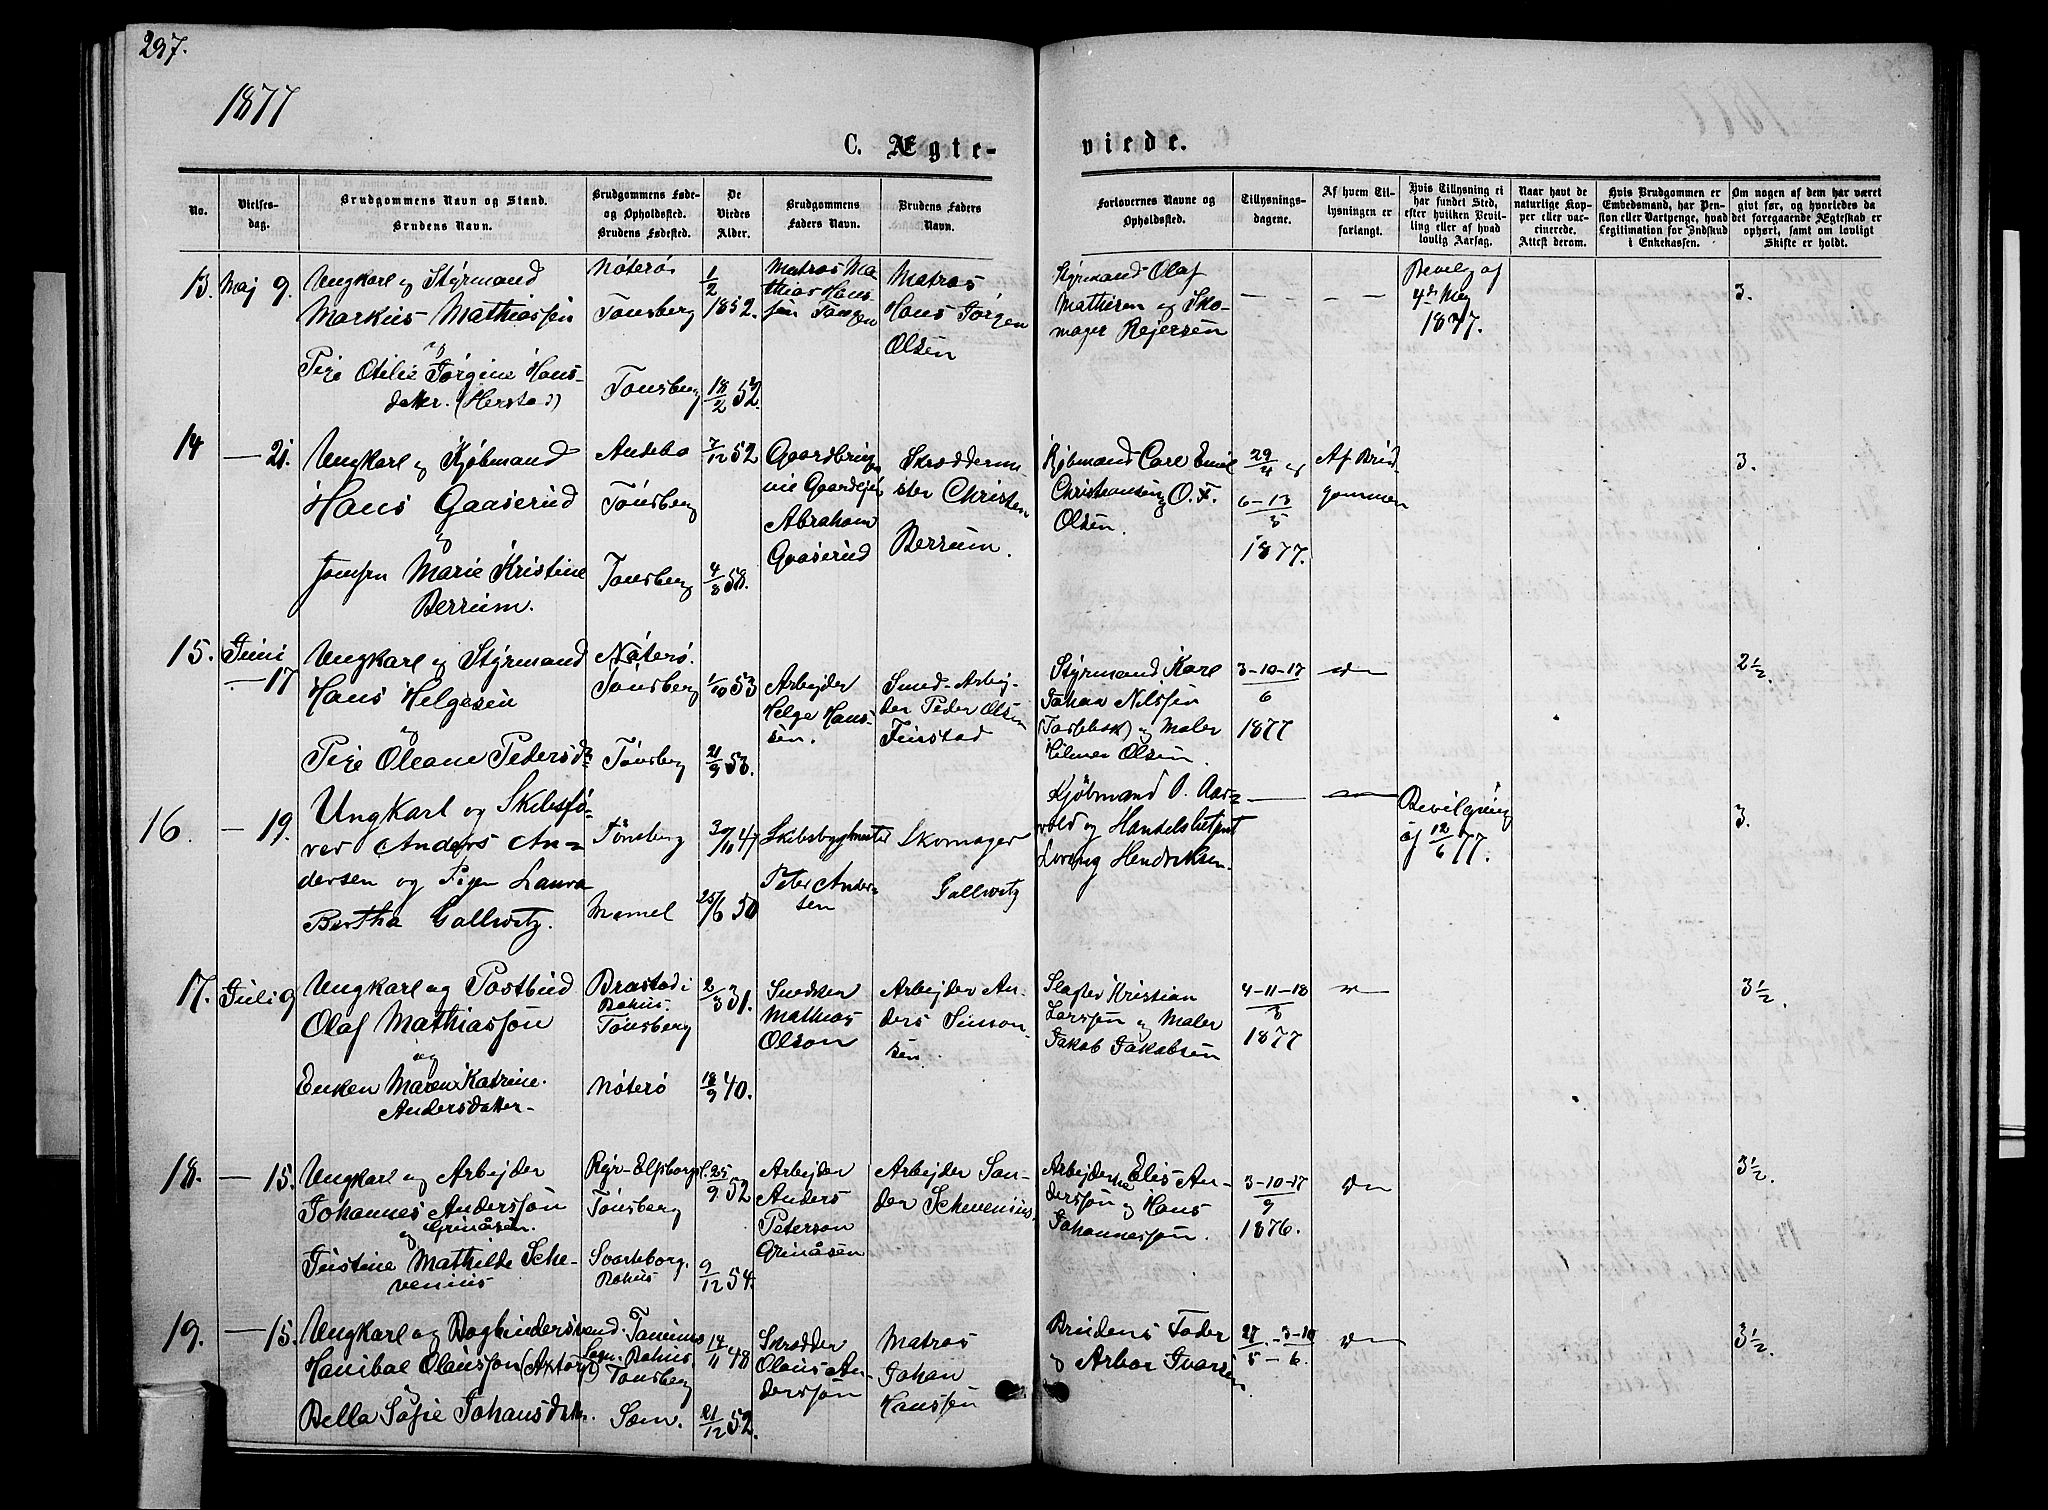 297.
1877
C. Ægte-
viede.
No.
Vielses-
dag.
Brudgommens Navn og Stand.
Brudens Navn.
Brudgommens Føde-
og Opholdssted.
Brudens Fødested.
De
Viedes
Alder.
Brudgommens
Faders Navn.
Brudens Faders
Navn.
Forlovernes Navne og
Opholdssted.
Tillysnings-
dagene.
Af hvem Til-
lysningen er
forlangt.
Hvis Tillysning ei
har fundet Sted,
efter hvilken Bevil-
ling eller af hvad
lovlig Aarsag.
Naar havt de
naturlige Kop-
per eller vac-
cinerede.
Attest derom.
Hvis Brudgommen er
Embedsmand, har Pen-
sion eller Vartpenge, hvad
Legitimation for Indskud
i Enkekassen.
Om nogen af dem har været
givt før, og hvorledes da
det foregaaende Ægteskab er
ophørt, samt om lovligt
Skifte er holdt.
13. Maj 9.
Ungkarl og Styrmand
Markus Mathiassen
og
Pige Otilie Jørgine Hans-
datter. (Herstad)
Nøterø
Tønsberg
Tønsberg
1/2
1852.
18/2 52.
Matros Ma-
thias Hans-
sen Tangen
Matros
Hans Jørgen
Olsen
Styrmand Olaf
Mathisen og Sko-
mager Rejersen
— —
— —
Bevilg af
4de Maj
1877.
3.
14 — 21.
Ungkarl og Kjøbmand
Hans Gaaserud
og
Jomfru Marie Kristine
Berrum.
Andebo
Tønsberg
Tønsberg
7/12 52
4/8 58.
Abraham
Gaaserud
Skrædderme-
ster Christen
Berrum.
Kjøbmand Carl Emil
Christiansen og O. F.
Olsen.
29/4 og
6-13/5
1877.
Af Brud-
gommen
3.
15. Juni
— 17
Ungkarl og Styrmand
Hans Helgesen
og
Pige Oleane Pedersd.
Nøterø.
Tønsberg
Tønsberg
1/10 53
21/9 53.
Arbejder
Helge Hans-
sen.
Smed-Arbej-
der Peder Olsen
Finstad
Styrmand Karl
Johan Nilssen
og Maler
Hilmer Olsen.
3-10-17/6
1877
2 1/2.
16. — 19.
Ungkarl og Skibsfø-
rer Anders An-
dersen og Pigen Laura
Bertha Gallwitz.
Tønsberg
Memel
30/11 47
25/6 50
Skibsbygmester
Peter Ander-
sen
Skomager
Gallwitz
Kjøbmand O. Aar-
vold og Handelsbetjent
Hendriksen.
—
Bevilgning
af 12/6 77.
3.
17. Juli 9
Ungkarl og Postbud
Olaf Mathiasson
og
Enken Maren Katrine
Andersdatter
Brastad i
Bahus.
Tønsberg
Nøterø
2/3 31.
18/9 40.
Snedker
Mathias
Olson
Arbejder An-
ders Simon-
sen.
Slagter Kristian
Larssen og Maler
Jakob Jakobsen
4-11-18/3
1877
3 1/2.
18. — 15.
Ungkarl og Arbejder
Johannes Andersson
Grinåsen.
og
Justine Mathilde Sche-
venius
Tønsberg
Svarteborg.
Bahus
25/9 52
9/12 54.
Arbejder
Anders
Peterson
Grinåsen
Arbejder San-
der Schevenius.
Arbejderne Elis An-
dersson og Hans
Johannesson.
3-10-17/9
1876.
3 1/2.
19. — 15.
Ungkarl og Bogbindersvend
Hanibal Olausson
og
Bella Sofie Johansdatter.
Tanum
Bahus
Tønsberg
Sæm.
14/11 48
21/12 52.
Skrædder
Olaus An-
dersson
Matros
Johan
Hanssen
Brudens Fader
og Arbor Ivarsen
27/5 - 3-10/6
3 1/2.